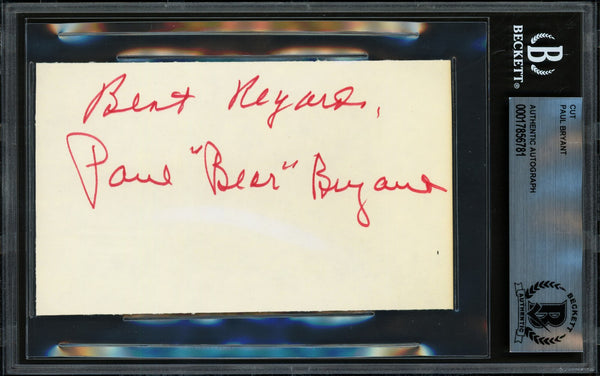 Best Regards,
Paul "Bear" Bryant
BECKETT®
CUT
PAUL BRYANT
AUTHENTIC AUTOGRAPH
00017856781
BECKETT
AUTHENTIC